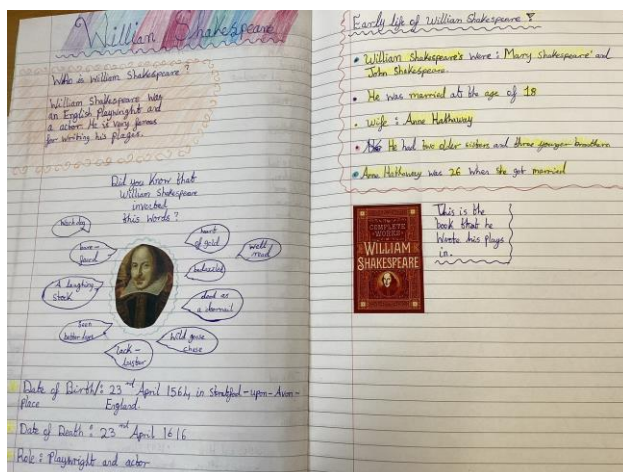 William Shakespeare
Who is William Shakespeare?
William Shakespeare was
an English Playwright and
a actor. He is very famous
for writing his plages.
Did you know that
William Shakespeare
invented
this words?
Watch dog
bare-
faced
A laughing
stock
Seen
better days
lack-
luster
Wild goose
chase
dead as
a doornail
bedazzled
heart
of gold
well
read
Date of Birth/: 23rd April 1564 in Stratford-upon-Avon-
place England.
Date of Death: 23rd April 1616
Role: Playwright and actor
Early life of William Shakespeare
William Shakespeare's were: Mary Shakespeare and
John Shakespeare.
He was married at the age of 18
Wife: Anne Hathaway
He had two older sisters and three younger brothers
Anne Hathaway was 26 when she got married
COMPLETE
WORKS
WILLIAM
SHAKESPEARE
This is the
book that he
wrote his plays
in.